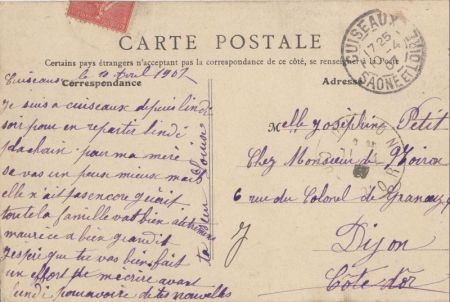 CARTE POSTALE
Certains pays étrangers n'acceptant pas la correspondance de ce côté, se renseigner à la Poste
Correspondance
Adresse
CUISEAUX
17 25
SAONE ET LOIRE
Cuiseaux le 10 Avril 1907
Je suis a cuiseaux depuis lindi
soir pour en repartir lindi
prochain pour ma mère
sa vas un peux mieux mais
elle n'ait pas encore quérit
toute la famille vat bien
maurice a bien grandit
J'espère que tu vas bien fait
un effort de m'écrire avant
lundi pour avoire de tes nouvelles
ta Louise
Melle Joséphine Petit
Chez Monsieur de Voiron
6 rue du Colonel de Grancey
Dijon
Côte d'or